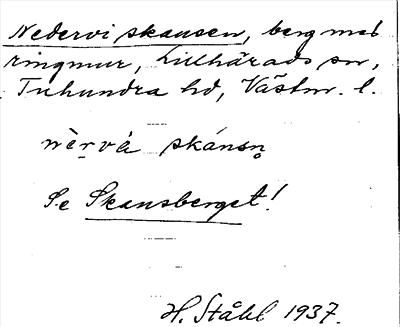 Nedervi skansen, berg med
ringmur, Lillhärads sn,
Tuhundra hd, Västm. l.
nèrvà skánsn̥
Se Skansberget!
H. Ståhl 1937.